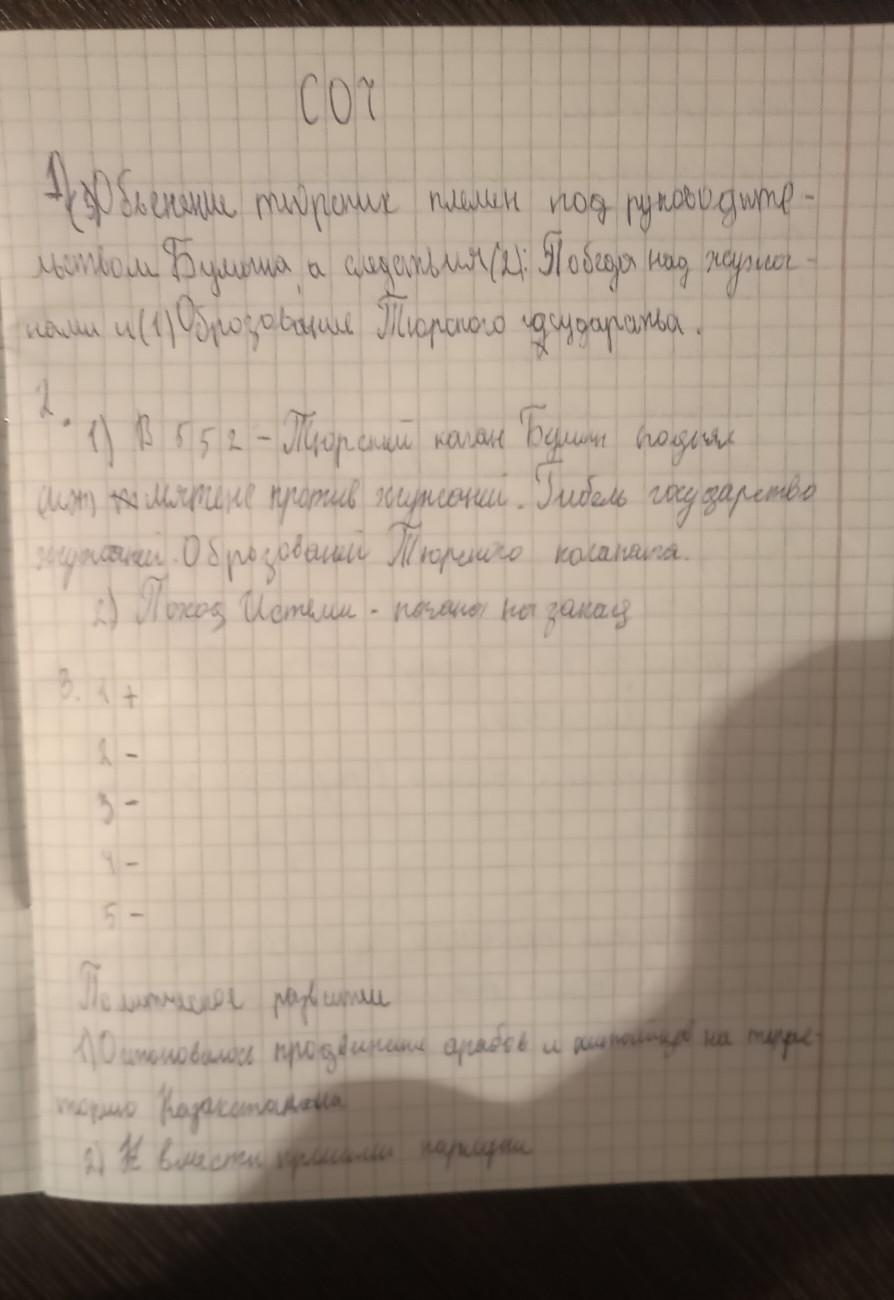 СОЧ
1) (3) Объенение тюрских племен под руководите-
льством Бумына, а следствия (2): Победа над жужа-
нами и (1) Образование Тюрского государства.
2.
1) В 552 - Тюрский каган Бумын поднял
мятеже против жужаней. Гибель государство
жужаней. Образований Тюрского каганата.
2) Поход Истеми - кагана на запад
3. 1 +
2 -
3 -
4 -
5 -
Политическое развитии
1) Остановалось продвинение арабов и китайцев на терри-
торию Казакстана
2) К власти пришли карлуки